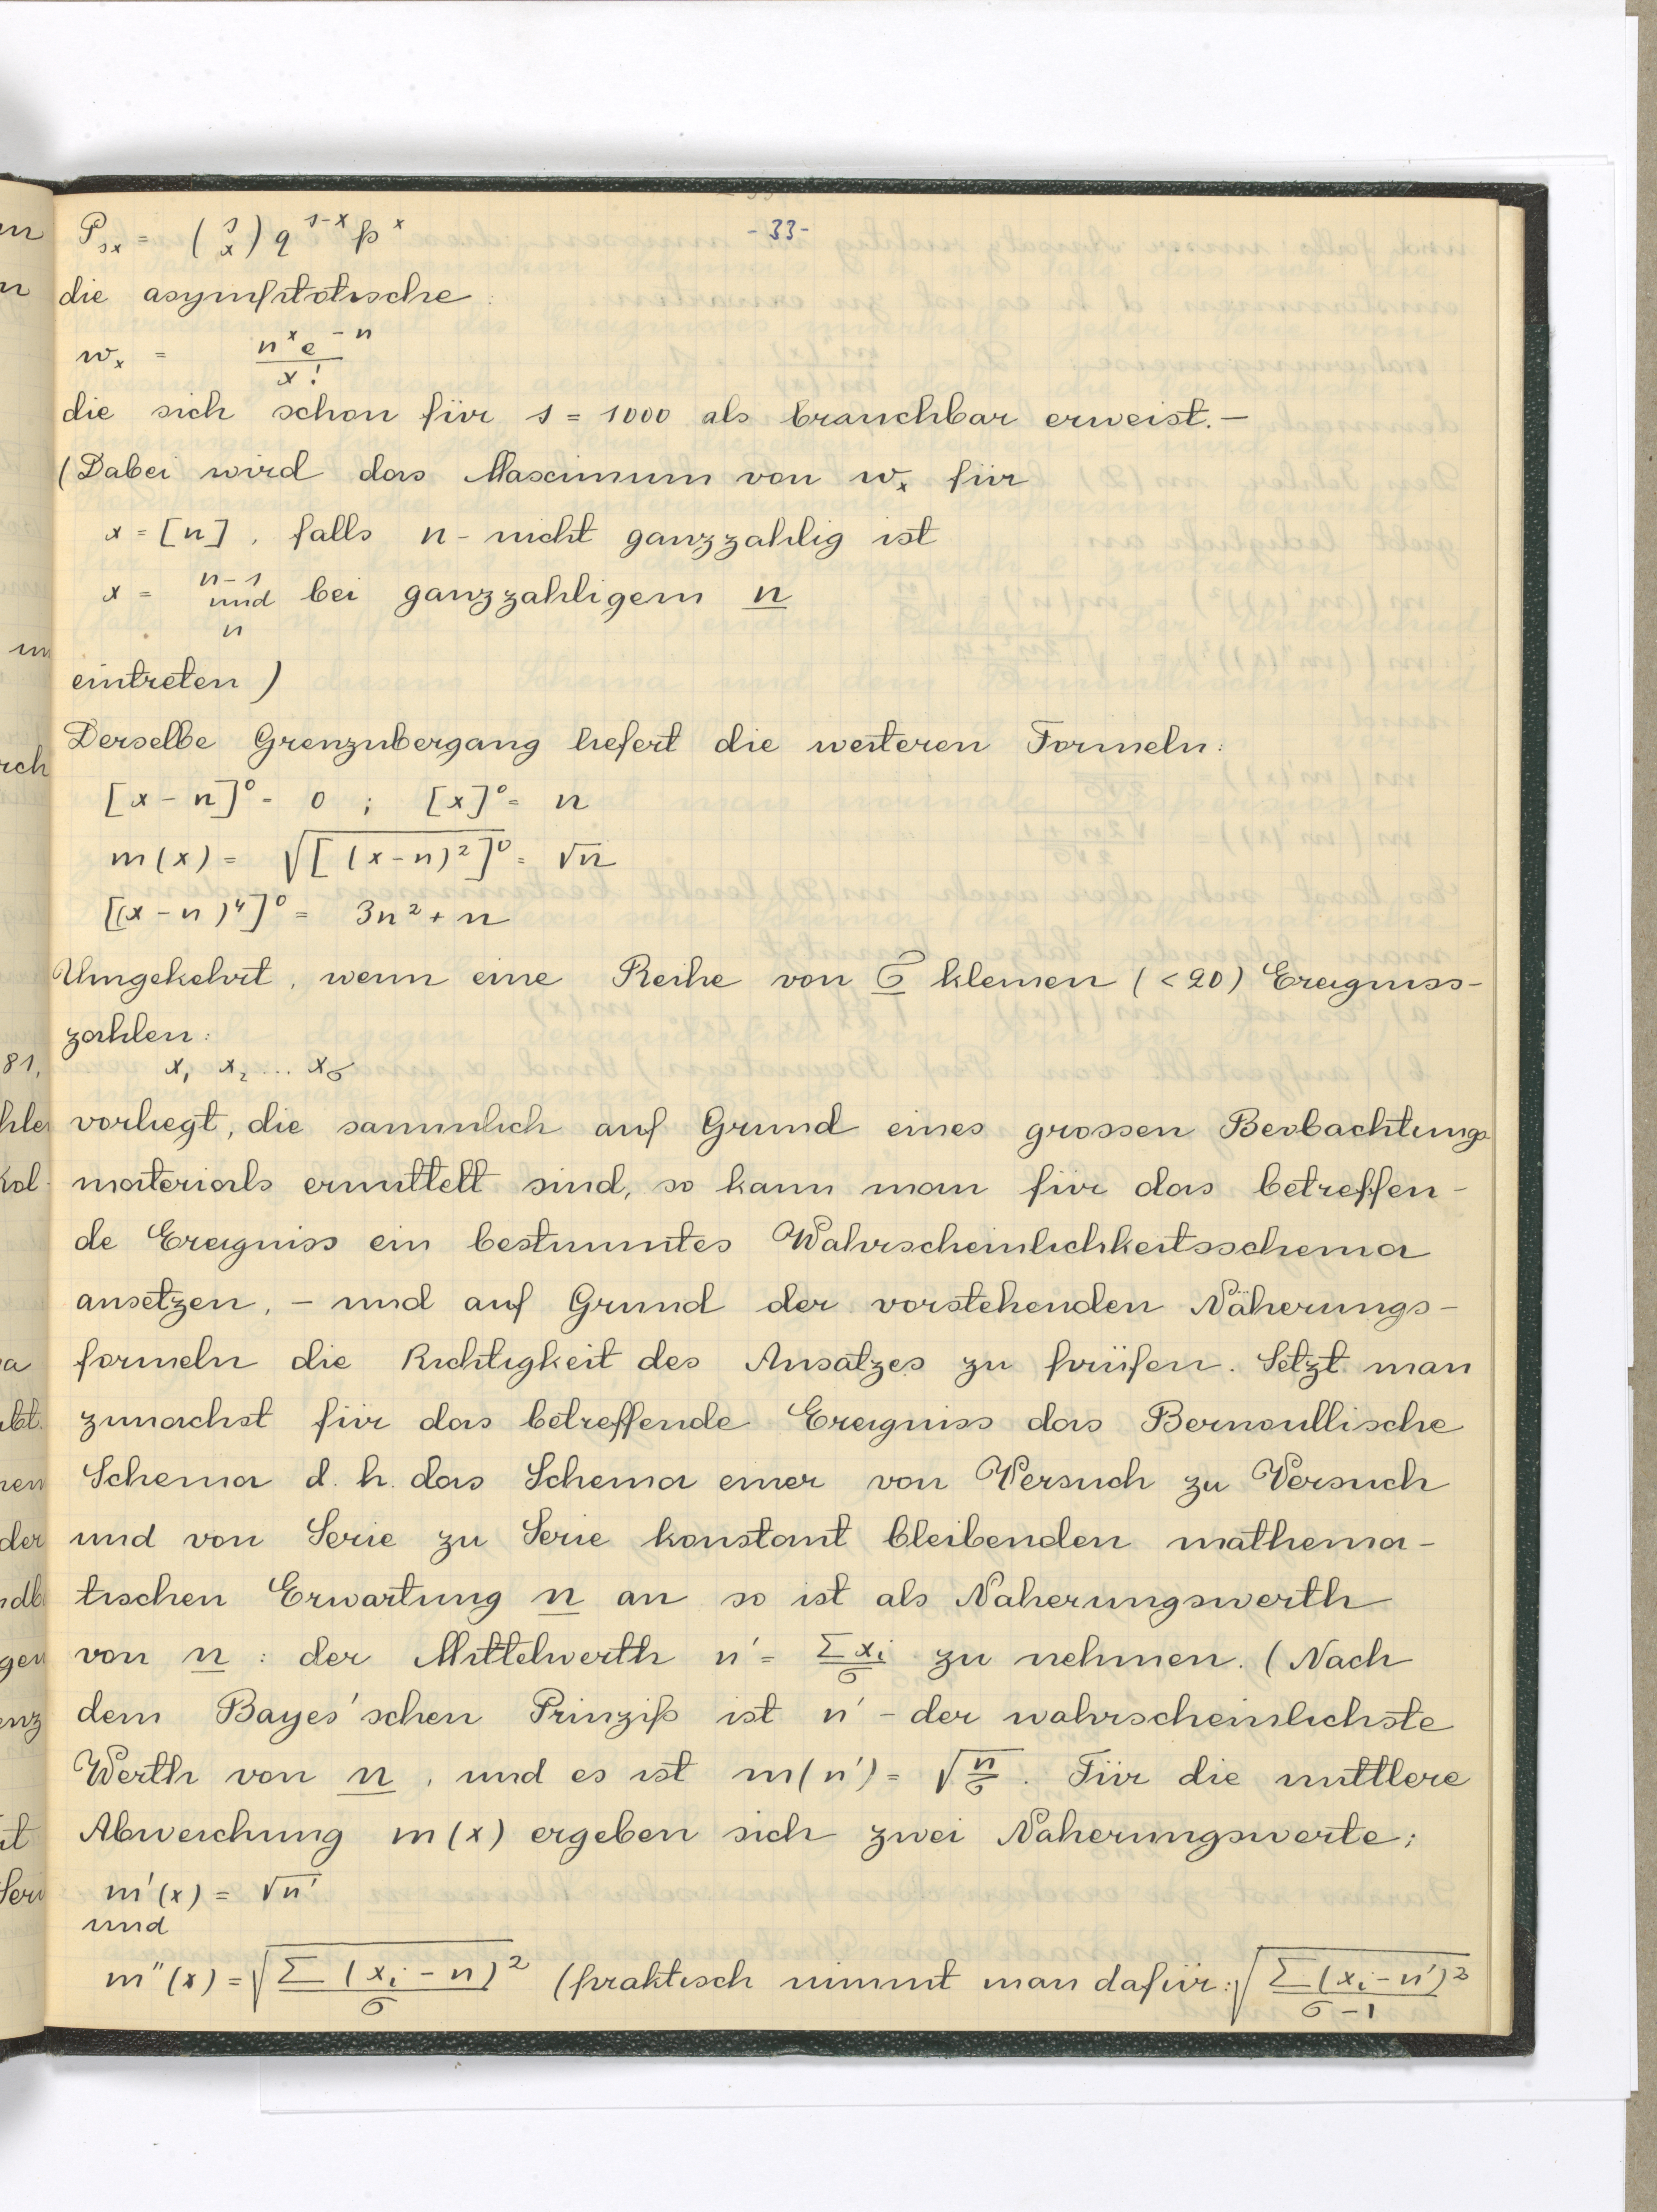 - 33 -
P_sx = (s x) q^{s-x} p^x
die asymptotische:
w_x = n^x e^{-n} / x!
die sich schon für s = 1000 als brauchbar erweist. —
(Dabei wird das Maximum von w_x für
x = [n], falls n - nicht ganzzahlig ist
x = n-1 und n bei ganzzahligem n
eintreten)
Derselbe Grenzubergang liefert die weiteren Formeln:
[x - n]⁰ = 0 ; [x]⁰ = n
m(x) = √[(x-n)²]⁰ = √n
[(x-n)⁴]⁰ = 3n² + n
Umgekehrt, wenn eine Reihe von σ kleinen (<20) Ereigniss-
zahlen:
x₁ x₂ ... x_σ
vorliegt, die sammlich auf Grund eines grossen Beobachtungs
materials ermittelt sind, so kann man für das betreffen-
de Ereigniss ein bestimmtes Wahrscheinlichkeitsschema
ansetzen, - und auf Grund der vorstehenden Näherungs-
formeln die Richtigkeit des Ansatzes zu prüfen. Setzt man
zunachst für das betreffende Ereigniss das Bernoullische
Schema d. h. das Schema einer von Versuch zu Versuch
und von Serie zu Serie konstant bleibenden mathema-
tischen Erwartung n an so ist als Naherungswerth
von n : der Mittelwerth n' = Σx_i/σ zu nehmen. (Nach
dem Bayes'schen Prinzip ist n' - der wahrscheinlichste
Werth von n, und es ist m(n') = √(n/σ). Für die mittlere
Abweichung m(x) ergeben sich zwei Naherungswerte;
m'(x) = √n'
und
m''(x) = √(Σ(x_i - n)²/σ) (praktisch nimmt man dafür: √(Σ(x_i - n')²/(σ-1))